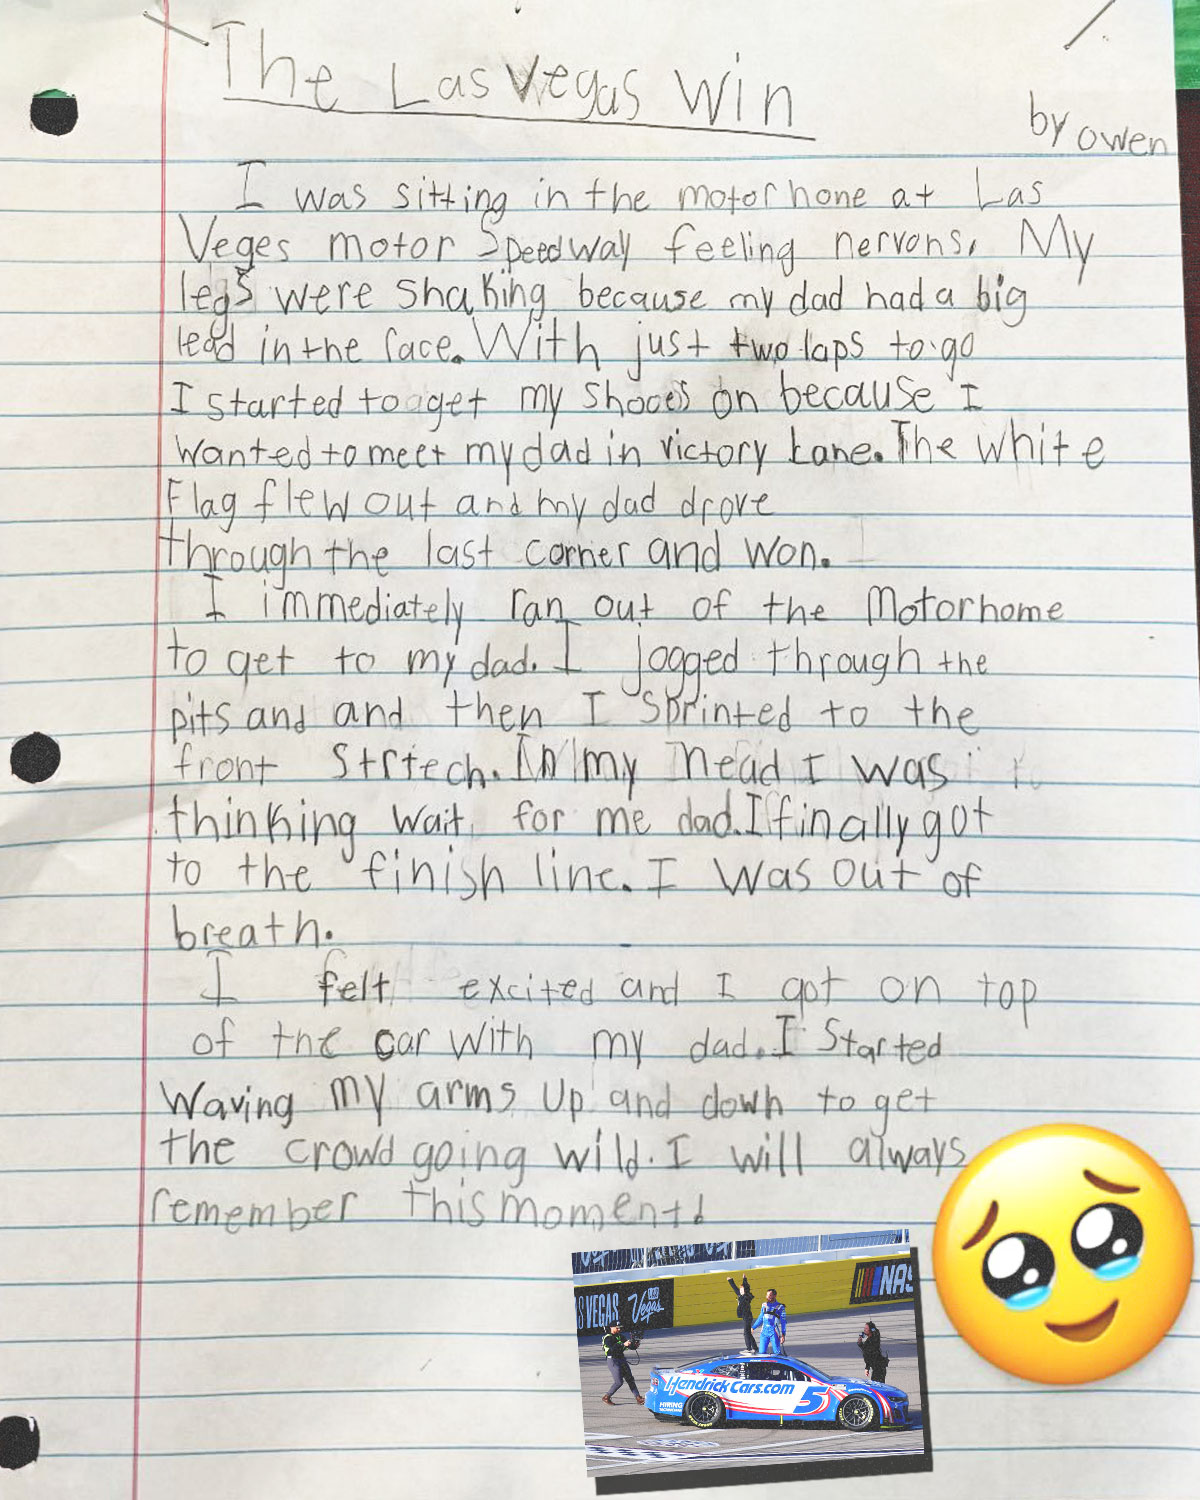 The Las Vegas Win
by owen
I was sitting in the motorhone at Las
Veges motor Speedway feeling nervons. My
legs were shaking because my dad had a big
lead in the race. With just two laps to go
I started to get my shooes on because I
wanted to meet my dad in victory Lane. The white
Flag flew out and my dad drove
through the last corner and won.
I immediately ran out of the Motorhome
to get to my dad. I jogged through the
pits and and then I sprinted to the
front Strtech. In my head I was
thinking wait for me dad. I finally got
to the finish line. I was out of
breath.
I felt excited and I got on top
of the car with my dad. I started
waving my arms up and down to get
the crowd going wild. I will always
remember this moment!
S VEGAS
LAS Vegas
NAS
HendrickCars.com 5
HIRING